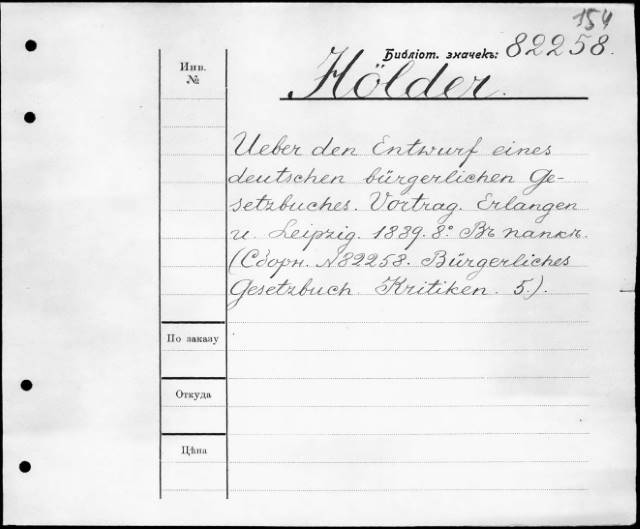 154
Библіот. значекъ: 82258.
Инв.
№
Hölder.
Ueber den Entwurf eines
deutschen bürgerlichen Ge-
setzbuches. Vortrag. Erlangen
u. Leipzig. 1889. 8° Въ папкѣ.
(Сборн. №82258. Bürgerliches
Gesetzbuch. Kritiken. 5.).
По заказу
Откуда
Цѣна